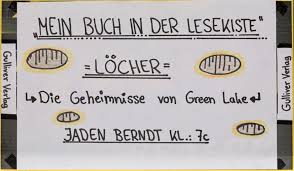 „MEIN BUCH IN DER LESEKISTE“
=LÖCHER=
↳Die Geheimnisse von Green Lake↲
JADEN BERNDT KL.: 7c
Gulliver Verlag
Gulliver Verlag